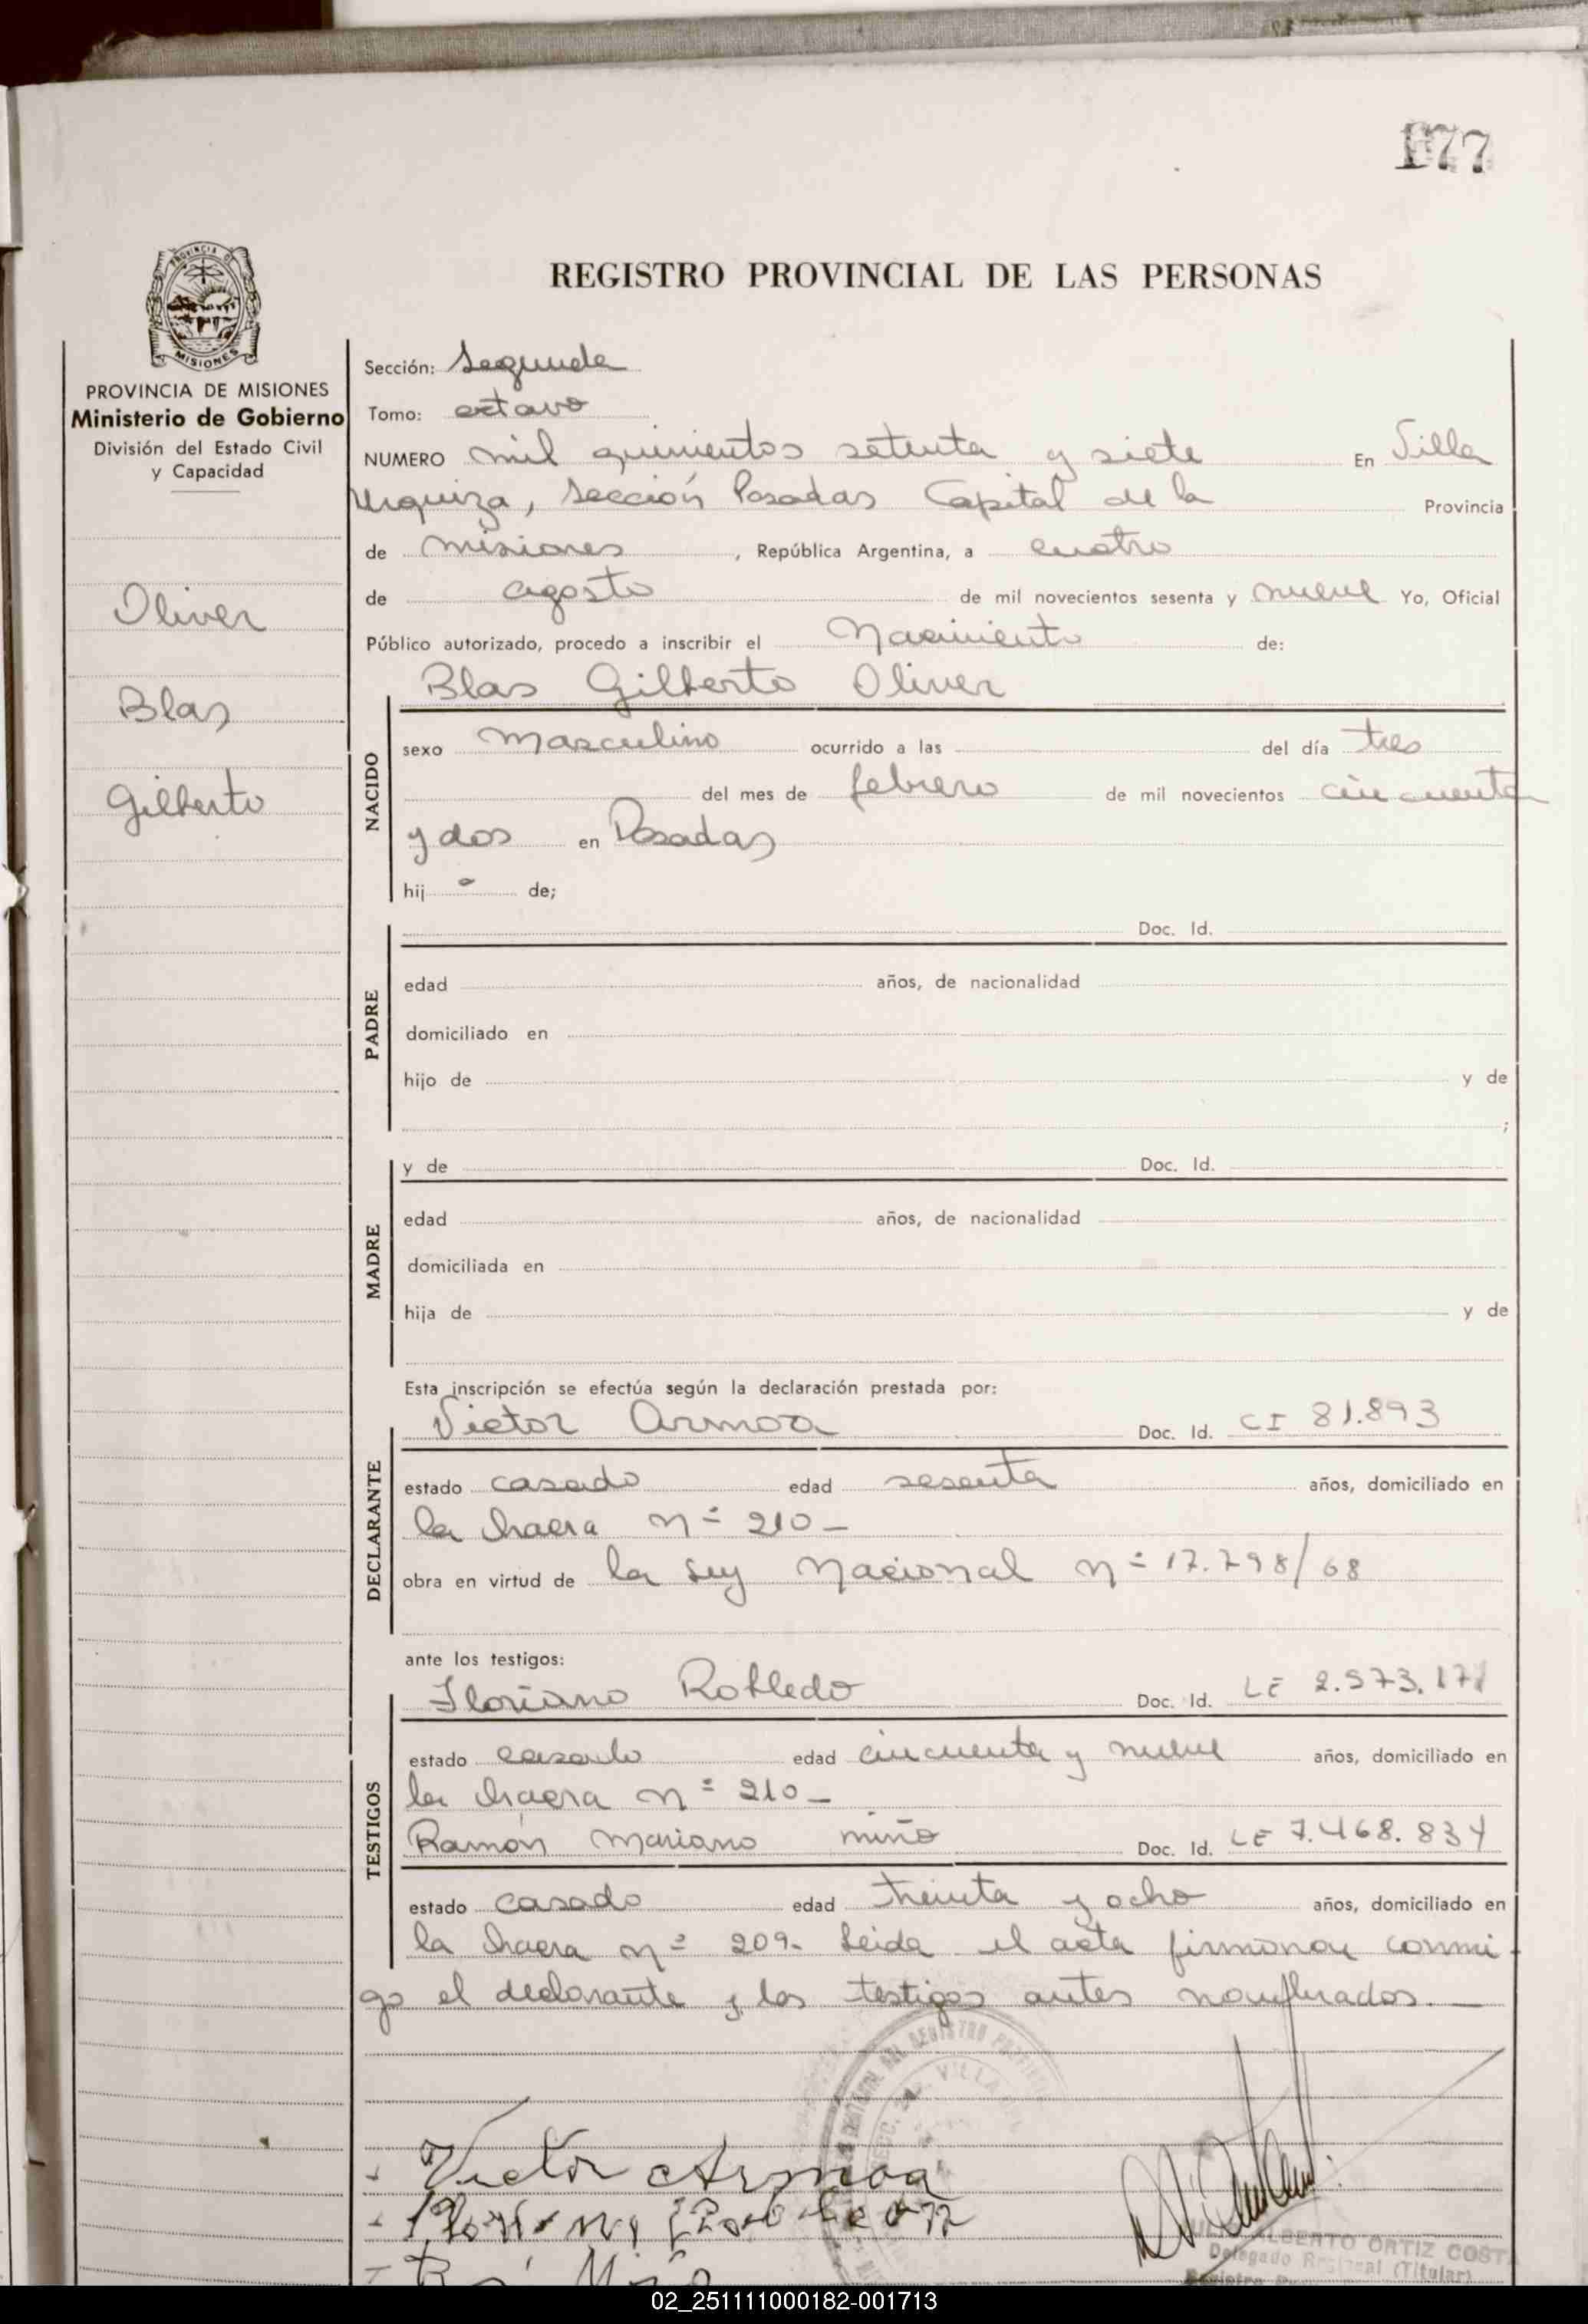 177
REGISTRO PROVINCIAL DE LAS PERSONAS
MISIONES
PROVINCIA DE MISIONES
Ministerio de Gobierno
División del Estado Civil
y Capacidad
Oliver
Blas
Gilberto
Sección: Segunda
Tomo: octavo
NUMERO mil quinientos setenta y siete En Villa
Urquiza, Sección Posadas Capital de la Provincia
de Misiones, República Argentina, a cuatro
de agosto de mil novecientos sesenta y nueve Yo, Oficial
Público autorizado, procedo a inscribir el Nacimiento de:
Blas Gilberto Oliver
NACIDO
sexo Masculino ocurrido a las del día tres
del mes de febrero de mil novecientos cincuenta
y dos en Posadas
hijo de;
PADRE
Doc. Id.
edad años, de nacionalidad
domiciliado en
hijo de y de
;
MADRE
y de Doc. Id.
edad años, de nacionalidad
domiciliada en
hija de y de
Esta inscripción se efectúa según la declaración prestada por:
DECLARANTE
Victor Armoa Doc. Id. CI 81.893
estado casado edad sesenta años, domiciliado en
la chacra nº 210-
obra en virtud de la Ley Nacional nº 17.798/68
ante los testigos:
TESTIGOS
Floriano Robledo Doc. Id. LE 2.573.171
estado casado edad cincuenta y nueve años, domiciliado en
la chacra nº 210-
Ramón Mariano Miño Doc. Id. LE 7.468.834
estado casado edad treinta y ocho años, domiciliado en
la chacra nº 209- Leida el acta firmaron conmi-
go el declarante y los testigos antes nombrados.-
VILLA
Victor Armoa
ALBERTO ORTIZ COSTA
Delegado Regional (Titular)
02_251111000182-001713